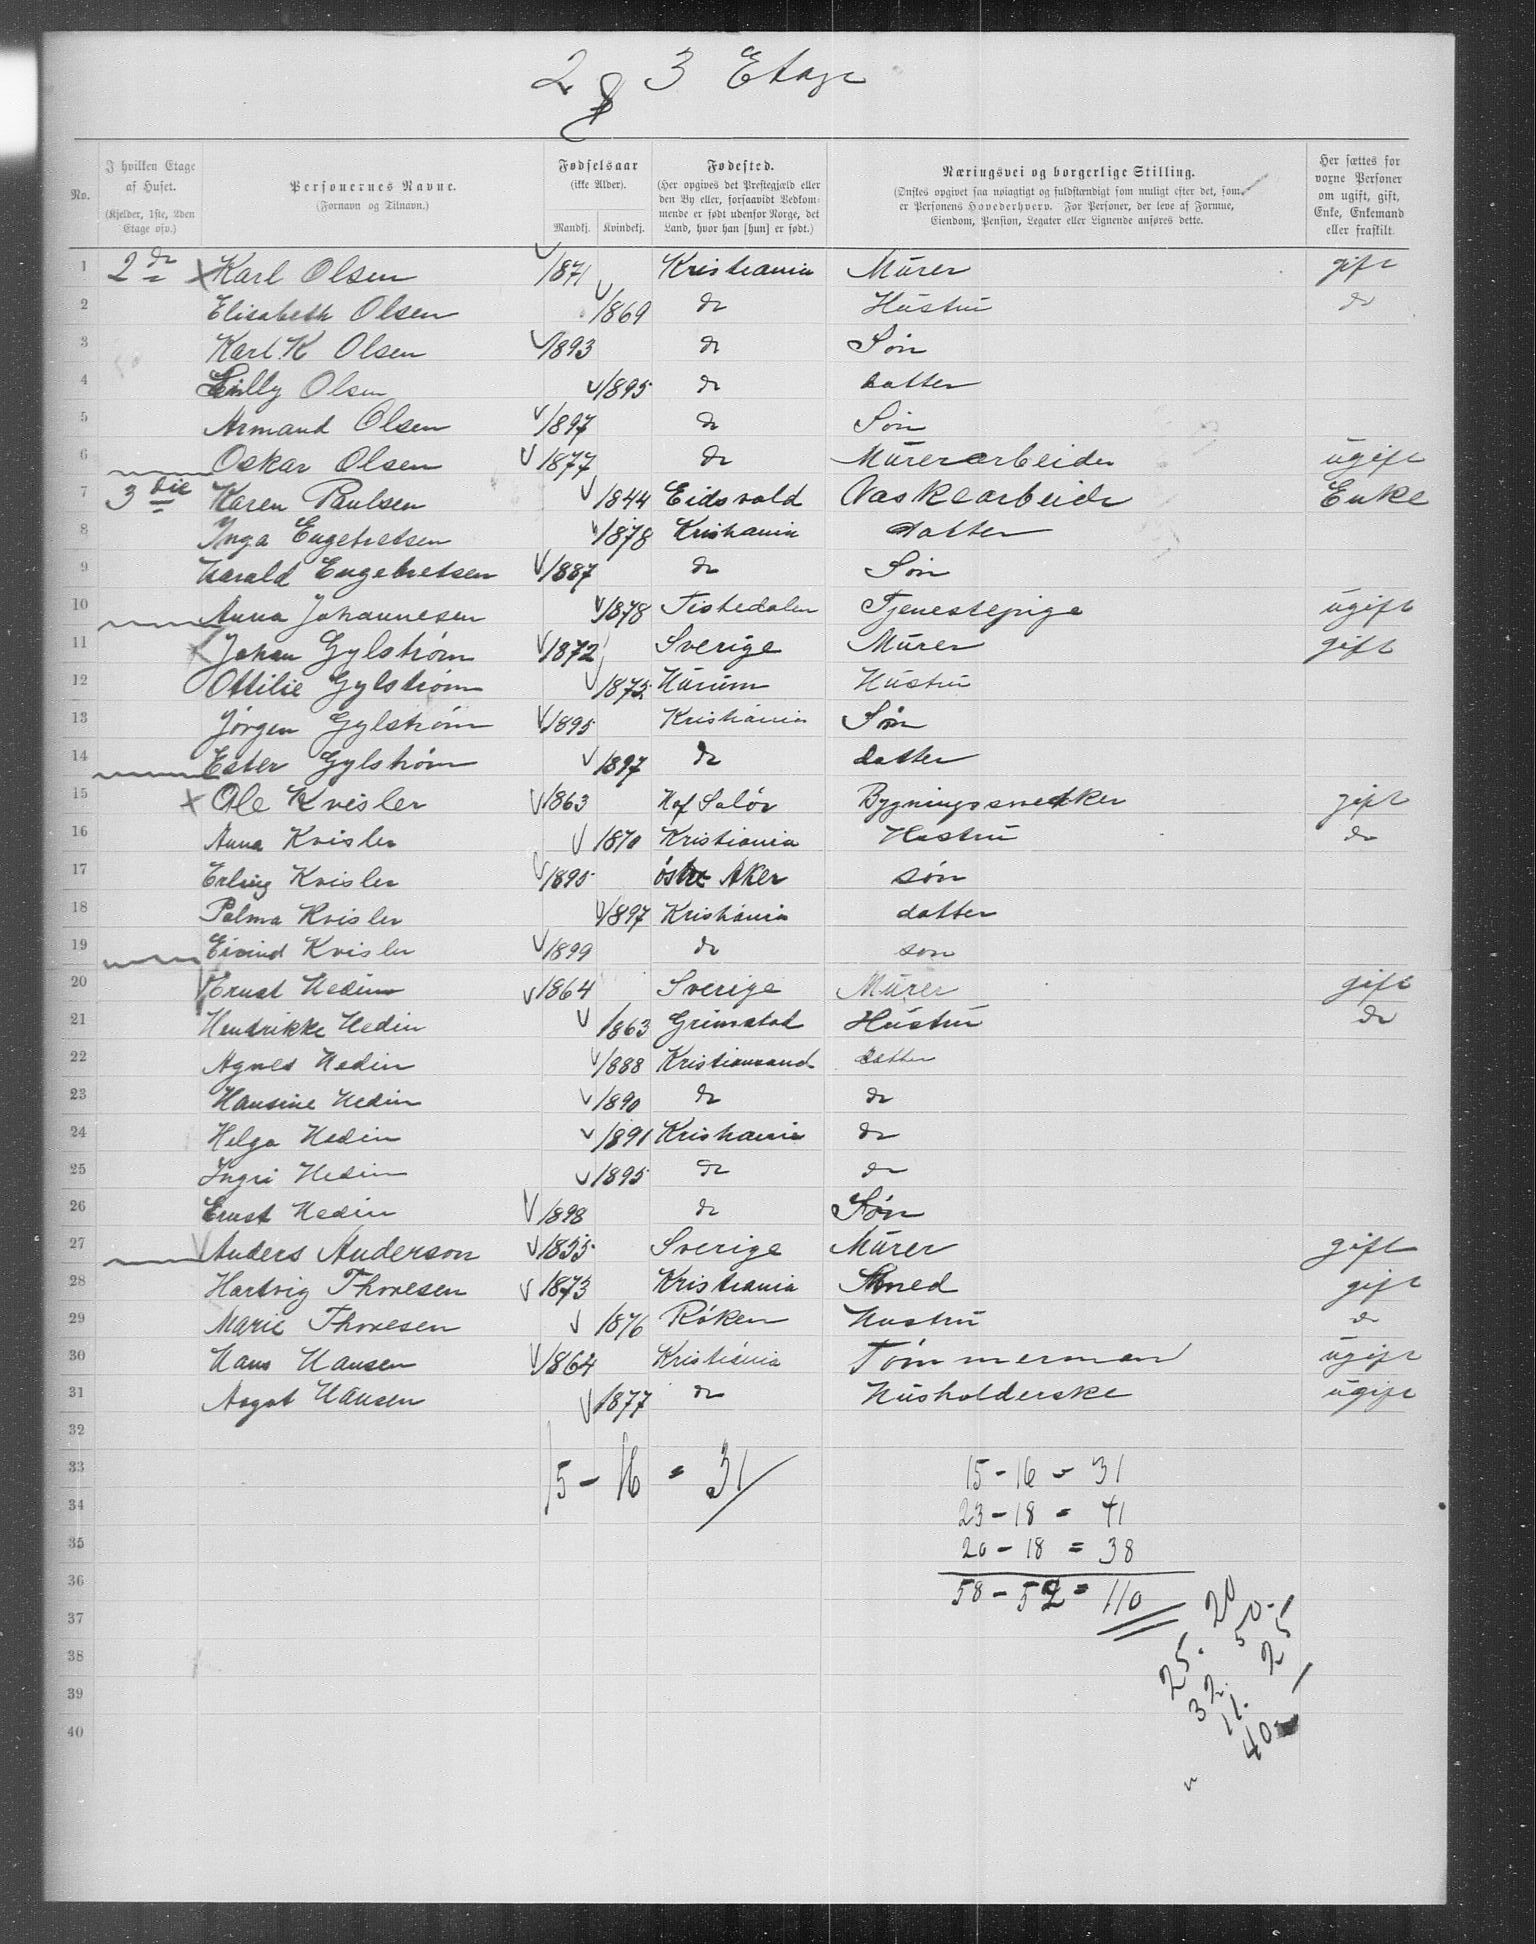 2 & 3 Etage
No.
I hvilken Etage af Huset. (Kjelder, 1ste, 2den Etage osv.)
Personernes Navne. (Fornavn og Tilnavn.)
Fødselsaar (ikke Alder). Mandkj. Kvindekj.
Fødested. (Her opgives det Prestegjæld eller den By eller, forsaavidt Vedkommende er født udenfor Norge, det Land, hvor han [hun] er født.)
Næringsvei og borgerlige Stilling. (Ønskes opgivet saa nøiagtigt og fuldstændigt som muligt efter det, som er Personens Hovederhverv. For Personer, der leve af Formue, Eiendom, Pension, Legater eller Lignende anføres dette.
Her sættes for voxne Personer om ugift, gift, Enke, Enkemand eller fraskilt.
1 2den Karl Olsen 1871 Kristiania Mürer gift
2 Elisabeth Olsen 1869 do Hüstrü do
3 Karl K Olsen 1893 do Søn
4 Lilly Olsen 1895 do datter
5 Armand Olsen 1897 do Søn
6 Oskar Olsen 1877 do Mürerarbeider ügift
7 3die Karen Paulsen 1844 Eidsvold Vaskearbeide Enke
8 Inga Engebretsen 1878 Kristiania datter
9 Harald Engebretsen 1887 do Søn
10 Anna Johannesen 1878 Tistedalen Tjenestepige ügift
11 Johan Gylstrøm 1872 Sverige Mürer gift
12 Ottilie Gylstrøm 1875 Hürüm Hüstrü
13 Jørgen Gylstrøm 1895 Kristiania Søn
14 Ester Gylstrøm 1897 do datter
15 Ole Kvisler 1863 Hof Solør Bygningssnedker gift
16 Anna Kvisler 1870 Kristiania Hüstrü do
17 Erling Kvisler 1895 østre Aker søn
18 Palma Kvisler 1897 Kristiania datter
19 Eivind Kvisler 1899 do søn
20 Ernst Hedin 1864 Sverige Mürer gift
21 Hendrikke Hedin 1863 Grimstad Hüstrü do
22 Agnes Hedin 1888 Kristiansand datter
23 Hansine Hedin 1890 do do
24 Helga Hedin 1891 Kristiania do
25 Ingri Hedin 1895 do do
26 Ernst Hedin 1898 do Søn
27 Anders Anderson 1855 Sverige Mürer gift
28 Hartvig Thoresen 1873 Kristiania Smed gift
29 Marie Thoresen 1876 Røken Hustrü do
30 Hans Hansen 1864 Kristiania Tømmerman ügift
31 Aagot Hansen 1877 do Hüsholderske ügift
32
33 15 - 16 = 31 15 - 16 = 31
34 23 - 18 = 41
35 20 - 18 = 38
36 58 - 52 = 110
37
38
39
40
25. 20
32. 50.
11. 25
40